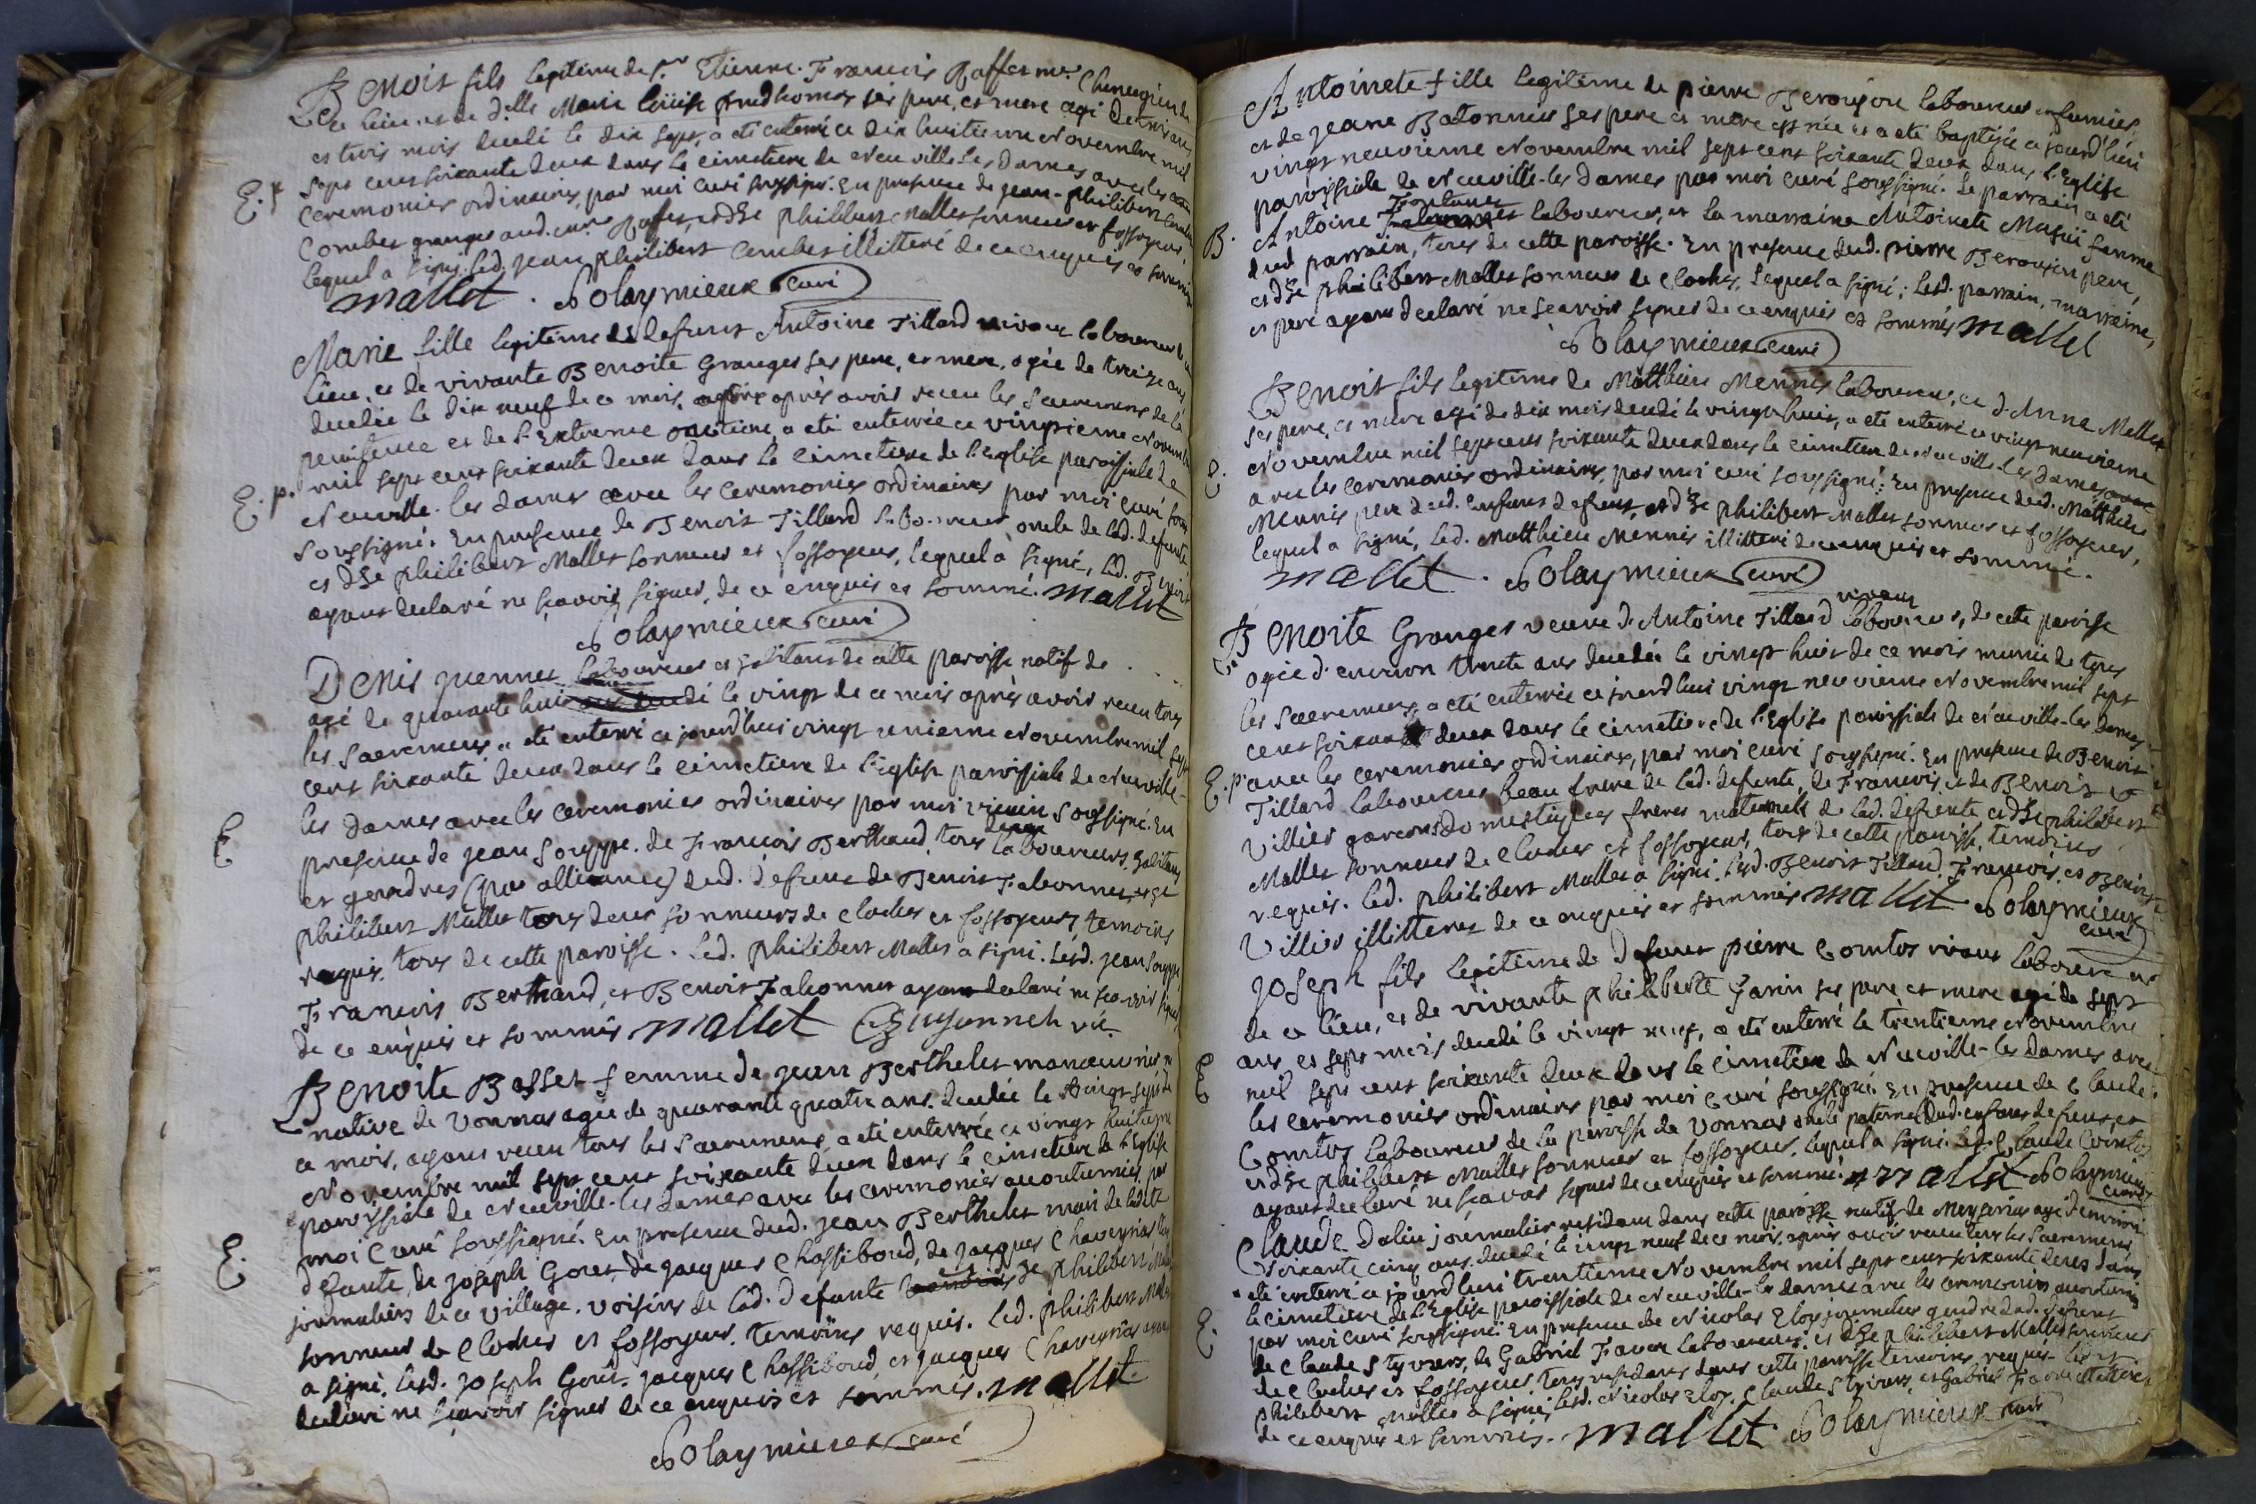 Benoit fils legitime de Sr Etienne François Raffet me Chirurgien de
ce lieu et de dlle Marie Loüise prudhomes ses pere, et mere agé de trois ans
et trois mois decedé le dix sept, a eté enterré ce dix huitieme Novembre mil
sept cent soixante deux dans le cimetiere de Neuville les Dames avec les
E. p ceremonies ordinaires, par moi curé soussigné. En presence de jean-philibert
Combet granger aud. sr Raffet, et de philibert Mallet sonneur et fossoyeur,
lequel a signé. led. jean philibert Combet illitteré de ce enquis et sommé
mallet . Solaymieux curé
Marie fille legitime de defunt Antoine Tillard vivant laboureur de ce
lieu, et de vivante Benoite Granges ses pere, et mere, agée de treize ans
decedée le dix neuf de ce mois, après avoir receu les Sacremens de la
penitence et de l'Extreme onction a eté enterrée ce vingtieme Novembre
E. p. mil sept cent soixante deux dans le cimetiere de l'Eglise paroissiale de
Neuville-les Dames avec les ceremonies ordinaires par moi curé
soussigné. En presence de Benoit Tillard laboureur oncle de lad. defunte
et de philibert Mallet sonneur et fossoyeur, lequel à signé, led. Benoit
ayant declaré ne sçavoir signer, de ce enquis et sommé. mallet
Solaymieux curé
Denis quennet laboureur et habitant de cette paroisse natif de
agé de quarante huit ans decedé le vingt de ce mois après avoir receu tous
les Sacremens, a eté enterré ce jourd'hui vingt unieme Novembre mil sept
cent soixante deux dans le cimetiere de l'Eglise paroissiale de Neuville-
les Dames avec les ceremonies ordinaires par moi vicaire soussigné. En
E presence de jean Souppe, de François Berthaud, tous deux laboureurs, habitans
et gendres (par alliance) dud. defunt de Benoit Falconnet, et de
philibert Mallet tous deux sonneurs de cloches et fossoyeurs, temoins
requis, tous de cette paroisse. Led. philibert Mallet a signé. Lesd. jean Souppe,
François Berthaud, et Benoit Falconnet ayant declaré ne sçavoir signer
de ce enquis et sommés mallet Guyonneh vic.
Benoite Basset femme de jean Berthelet manœuvrier
native de Vonnas agée de quarante quatre ans, decedée le vingt-sept de
ce mois, ayant receu tous les Sacremens, a eté enterrée ce vingt huitieme
Novembre mil sept cent soixante deux dans le cimetiere de l'Eglise
paroissiale de Neuville-les Dames avec les ceremonies accoutumées, par
moi Curé soussigné. En presence dud. jean Berthelet mari de ladite
E. defunte, de joseph Goret, de jacques Chassiboud, de jacques Chaveyriat tous
journaliers de ce village, voisins de lad. defunte de philibert
sonneur de cloches et fossoyeur, temoins requis. Led. philibert Mallet
a signé, lesd. joseph Goret, jacques Chassiboud, et jacques Chaveyriat ayant
declaré ne sçavoir signer de ce enquis et sommés. mallet
Solaymieux curé
Antoinete fille legitime de pierre Beroujon laboureur
et de jeane Batonnier ses pere et mere est née et a eté baptisée ce jourd'hui
vingt neuvieme Novembre mil sept cent soixante deux dans l'Eglise
paroissiale de Neuville-les Dames par moi curé soussigné. Le parrain a eté
B. Antoine laboureur, et la marraine Antoinete femme
dud parrain, tous de cette paroisse. En presence dud. pierre Beroujon pere,
et de philibert Mallet sonneur de cloches, lequel a signé; lesd. parrain, marraine,
et pere ayant declaré ne sçavoir signer de ce enquis et sommés mallet
Solaymieux curé
Benoit fils legitime de Matthieu Mennis laboureur, et d'Anne Mellet
ses pere, et mere agé de dix mois decedé le vingt huit, a eté enterré ce vingt neuvieme
Novembre mil sept cent soixante deux dans le cimetiere de Neuville-les Dames
avec les ceremonies ordinaires, par moi curé soussigné. En presence dud. Matthieu
Mennis pere dud. enfant defunt, et de philibert Mallet sonneur et fossoyeur,
lequel a signé, led. Matthieu Mennis illitteré de ce enquis et sommé.
mallet . Solaymieux curé
Benoite Granges veuve d'Antoine Tillard vivant laboureur, de cette paroisse
agée d'environ trente ans decedée le vingt huit de ce mois munie de tous
les Sacremens, a eté enterrée ce jourd'hui vingt neuvieme Novembre mil sept
cent soixante deux dans le cimetiere de l'Eglise paroissiale de Neuville-les Dames
E. p avec les ceremonies ordinaires, par moi curé soussigné. En presence de Benoit
Tillard laboureur beau frere de lad. defunte, de François, et de Benoit
Villier garcons domestiques freres maternels de lad. defunte et de philibert
Mallet sonneur de cloches et fossoyeur, tous de cette paroisse, temoins
requis. Led. philibert Mallet a signé. Lesd. Benoit Tillard, François, et Benoit
Villier illitterés de ce enquis et sommés mallet Solaymieux
curé
Joseph fils legitime de defunt pierre Comtet vivant laboureur
de ce lieu, et de vivante philiberte Garin ses pere et mere agé de sept
ans et sept mois decedé le vingt neuf, a eté enterré le trentieme Novembre
E mil sept cent soixante deux dans le cimetiere de Neuville-les Dames avec
les ceremonies ordinaires par moi curé soussigné. En presence de Claude
Comtet laboureur de la paroisse de Vonnas oncle paternel dud. enfant defunt, et
et de philibert Mallet sonneur et fossoyeur, lequel a signé. Led. Claude Comtet
ayant declaré ne sçavoir signer de ce enquis et sommé. mallet Solaymieux
curé
Claude Dalin journalier residant dans cette paroisse natif de Meyseriat agé d'environ
soixante cinq ans, decedé le vingt neuf de ce mois, après avoir receu tous les Sacremens,
a eté enterré ce jourd'hui trentieme Novembre mil sept cent soixante deux dans
le cimetiere de l'Eglise paroissiale de Neuville-les dames avec les ceremonies accoutumées
E. par moi curé soussigné. En presence de Nicolas Eloy journalier gendre dud. defunt
de Claude de Gabriel Favre laboureurs, et de philibert Mallet sonneur
de cloches et fossoyeur tous residans dans cette paroisse temoins requis. Led.
philibert Mallet a signé, lesd. Nicolas Eloy, Claude et Gabriel Favre illitterés
de ce enquis et sommés. mallet Solaymieux curé